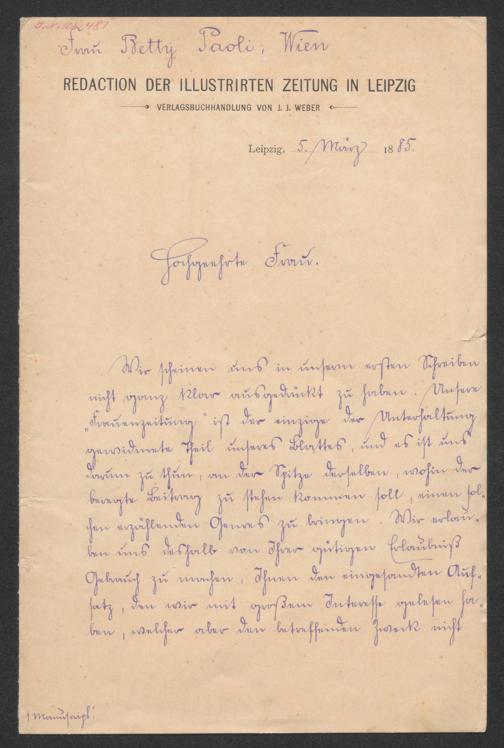 Frau Betty Paoli, Wien
REDACTION DER ILLUSTRIRTEN ZEITUNG IN LEIPZIG
VERLAGSBUCHHANDLUNG VON J. J. WEBER
Leipzig, 5. März 1885.
Hochgeehrte Frau.
Wir scheinen uns in unserm ersten Schreiben
nicht ganz klar ausgedrückt zu haben. Unsere
„Frauenzeitung" ist der einzige der Unterhaltung
gewidmete Theil unseres Blattes, und es ist uns
darum zu thun, an der Spitze derselben, wohin der
beregte Beitrag zu stehen kommen soll, einen sol-
chen erzählenden Genres zu bringen. Wir erlau-
ben uns deshalb von Ihrer gütigen Erlaubniß
Gebrauch zu machen, Ihnen den eingesandten Auf-
satz, den wir mit großem Interesse gelesen ha-
ben, welcher aber den betreffenden Zweck nicht
1 Manuscript